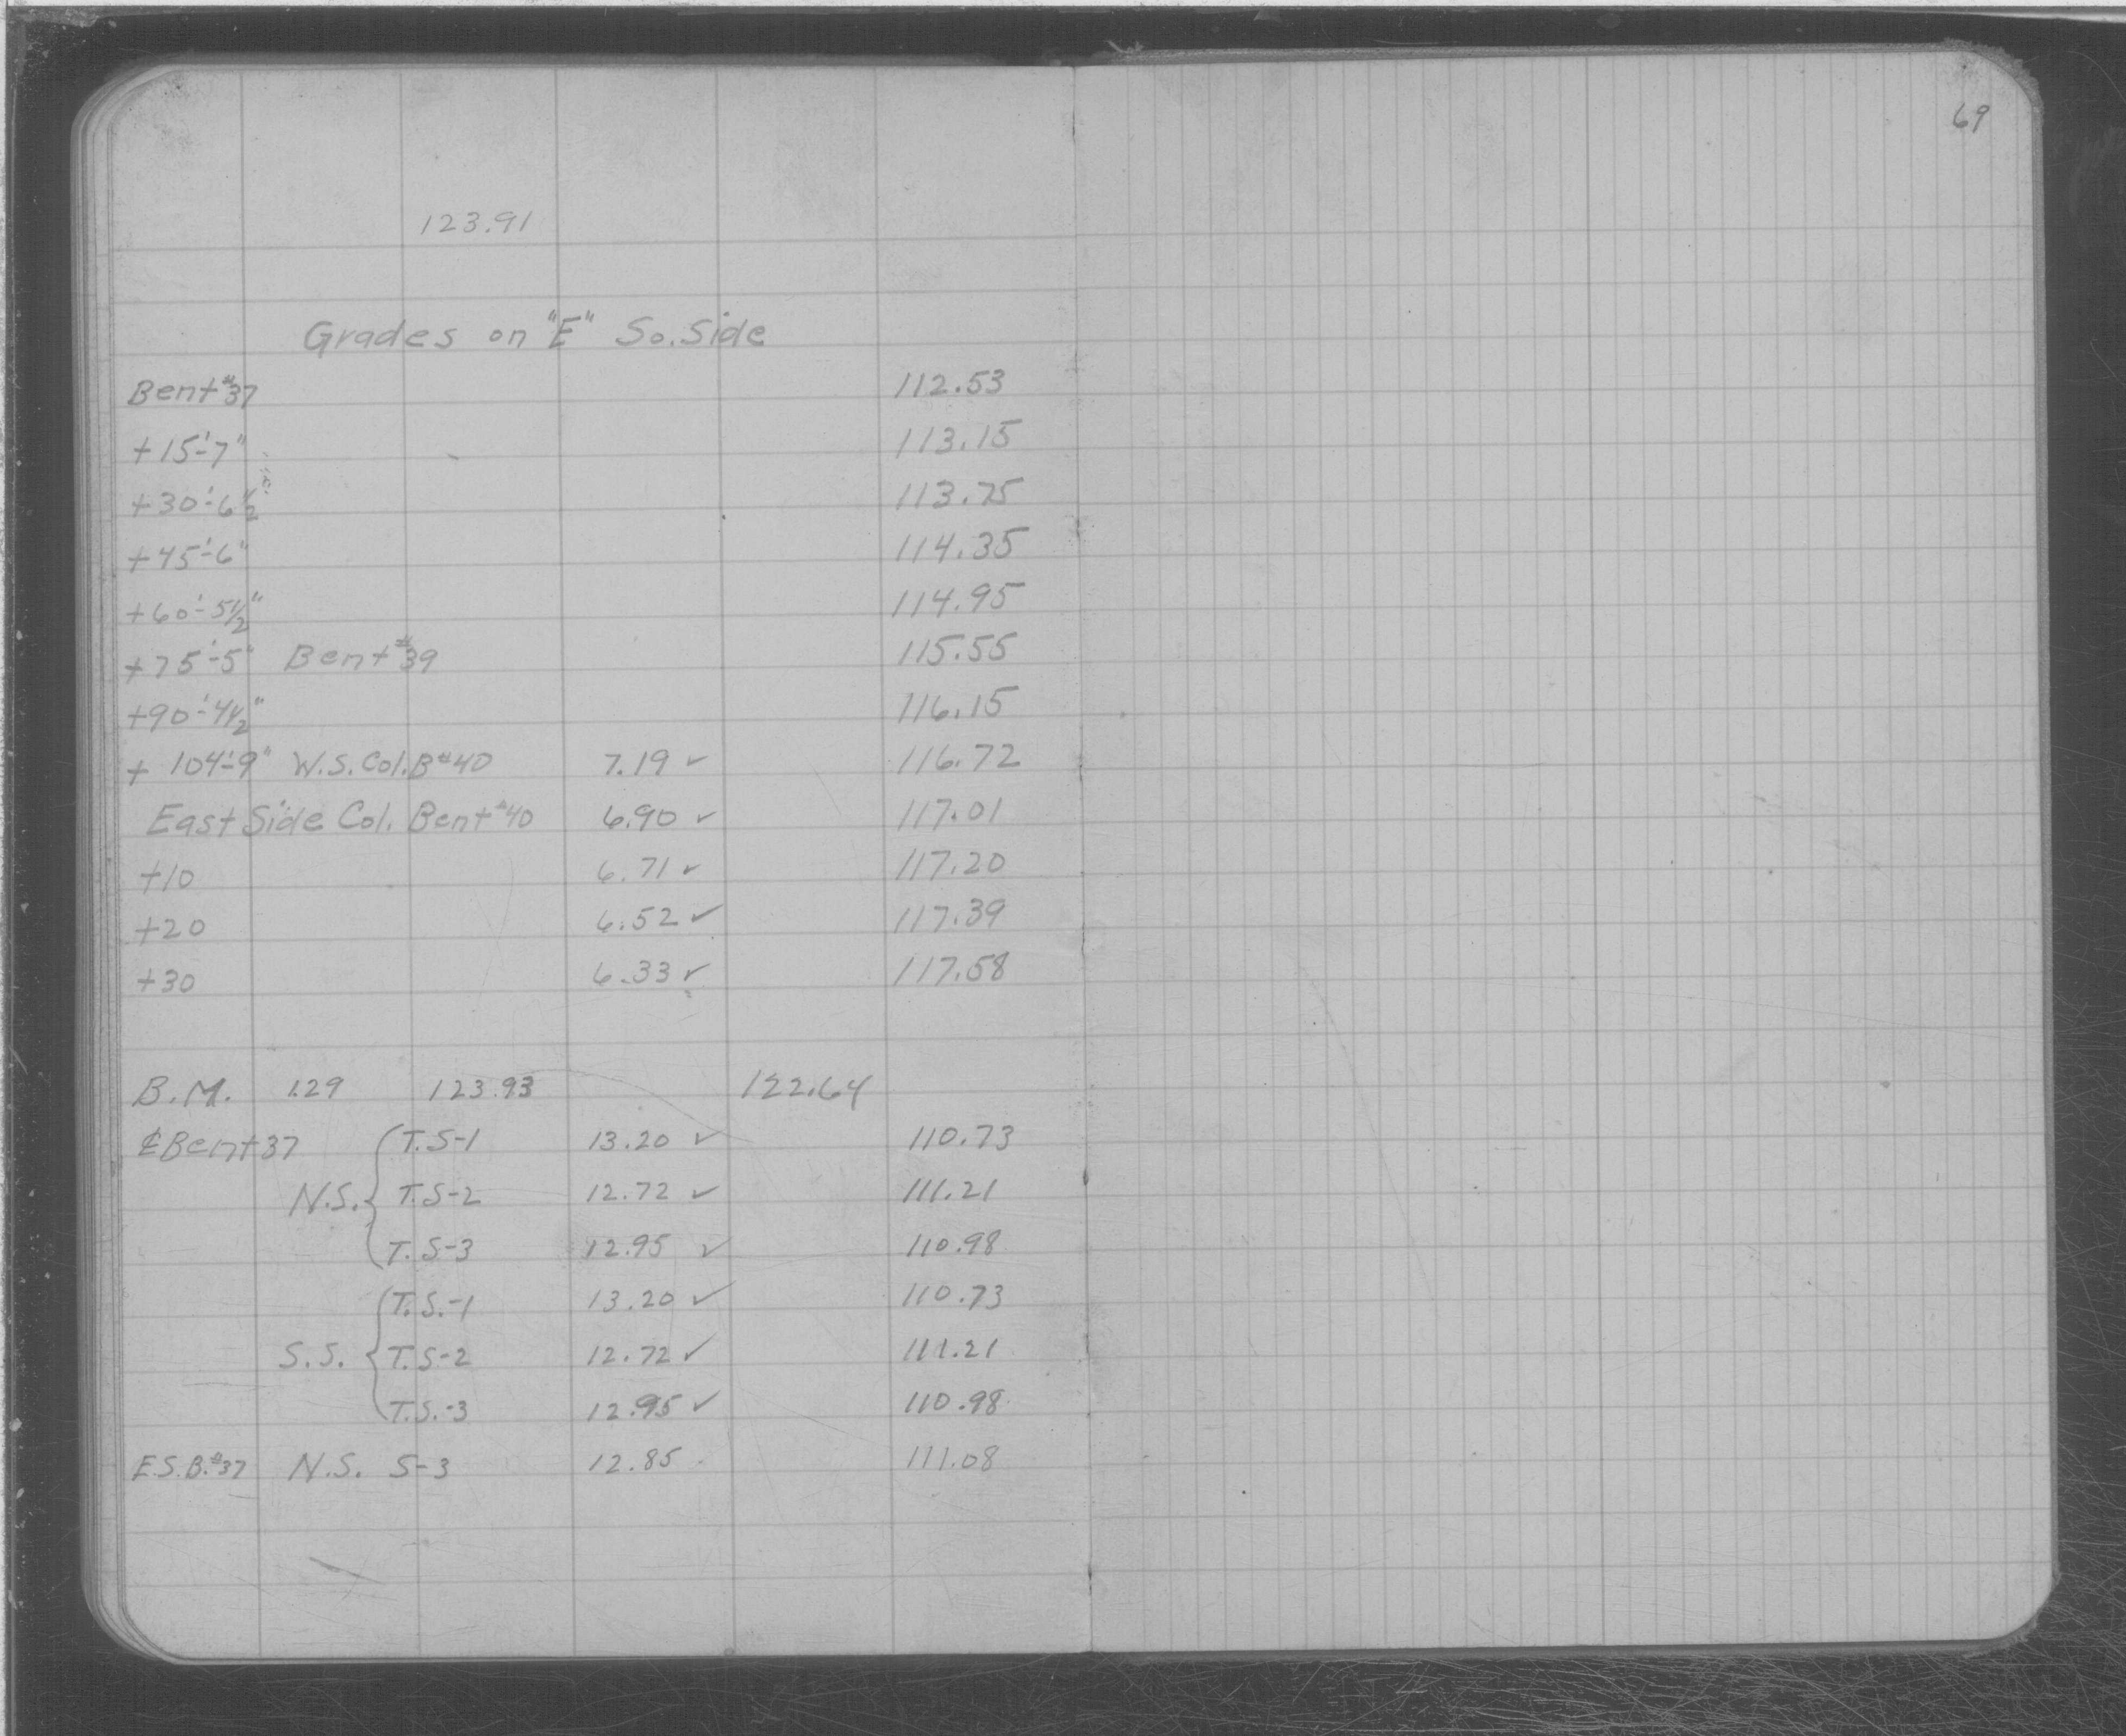 69
123.91
Grades on "E" So. Side
Bent #37 112.53
+15'-7" 113.15
+30'-6 1/2 113.75
+45'-6" 114.35
+60'-5 1/2" 114.95
+75'-5" Bent #39 115.55
+90'-4 1/2" 116.15
+ 104'-9" W.S. Col. B #40 7.19 ✓ 116.72
East Side Col. Bent #40 6.90 ✓ 117.01
+10 6.71 ✓ 117.20
+20 6.52 ✓ 117.39
+30 6.33 ✓ 117.58
B.M. 1.29 123.93 122.64
₵ Bent 37 T.S-1 13.20 ✓ 110.73
N.S. T.S-2 12.72 ✓ 111.21
T.S-3 12.95 ✓ 110.98
T.S.-1 13.20 ✓ 110.73
S.S. T.S-2 12.72 ✓ 111.21
T.S.-3 12.95 ✓ 110.98
E.S.B. #37 N.S. S-3 12.85 111.08